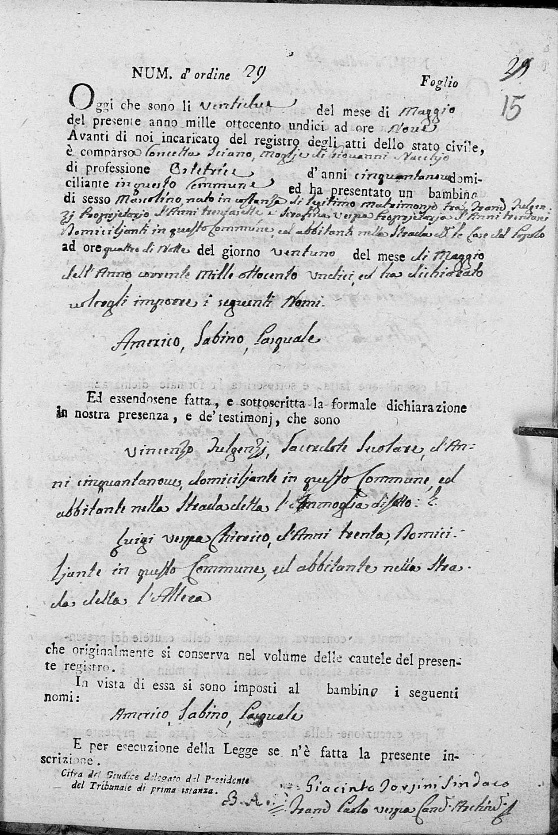 NUM. d'ordine 29 Foglio 29
15
Oggi che sono li ventidue del mese di Maggio
del presente anno mille ottocento undici ad ore Nove
Avanti di noi incaricato del registro degli atti dello stato civile,
è comparso Concetta Sciano, moglie di Giovanni
di professione Ostetrice d'anni cinquantanove domi-
ciliante in questo Commune ed ha presentato un bambino
di sesso Mascolino, nato in costanza di legitimo matrimonio tra Fulgen-
zj Proprietario d'Anni trentasette e Serafina Vespa Proprietaria d'Anni
Domiciljanti in questo Commune, ed abbitanti nella Strada le Case del Popolo
ad ore quattro di Notte del giorno ventuno del mese di Maggio
dell'Anno corrente Mille Ottocento Undici, ed ha dichiarato
volergli imporre i seguenti Nomi.
Americo, Sabino, Pasquale
Ed essendosene fatta, e sottoscritta la formale dichiarazione
in nostra presenza, e de' testimonj, che sono
Vincenzo Fulgenzj, Sacerdote Secolare, d'An-
ni cinquantanove, domiciljante in questo Commune, ed
abbitante nella Strada detta di sotto: E
Luigi Vespa Chierico, d'Anni trenta, Domici-
ljante in questo Commune, ed abbitante nella Stra-
da detta
che originalmente si conserva nel volume delle cautele del presen-
te registro.
In vista di essa si sono imposti al bambino i seguenti
nomi:
Americo, Sabino, Pasquale
E per esecuzione della Legge se n'è fatta la presente in-
scrizione.
Cifra del Giudice delegato dal Presidente
del Tribunale di prima istanza.
Giacinto Sindaco
Paolo Vespa Canc.